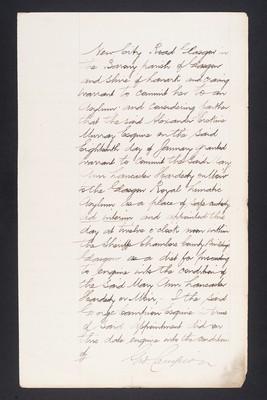 New City Road Glasgow in
the Barony Parish of Glasgow
and Shire of Lanark and craving
warrant to commit her to an
Asylum and Considering further
that the said Alexander Erskine
Murray Esquire on the said
Eighteenth day of January granted
warrant to Commit the said Mary
Ann Lancaster Hardesdy or Muir
to the Glasgow Royal Lunatic
Asylum as a place of safe custody
ad interim and appointed this
day at twelve o'clock noon within
the Sheriffs Chambers County Buildings
Glasgow as a diet for proceeding
to enquire into the condition of
the said Mary Ann Lancaster
Hardesdy or Muir, - I the said
George Esquire
of said Appointment did on
this date enquire into the condition
of